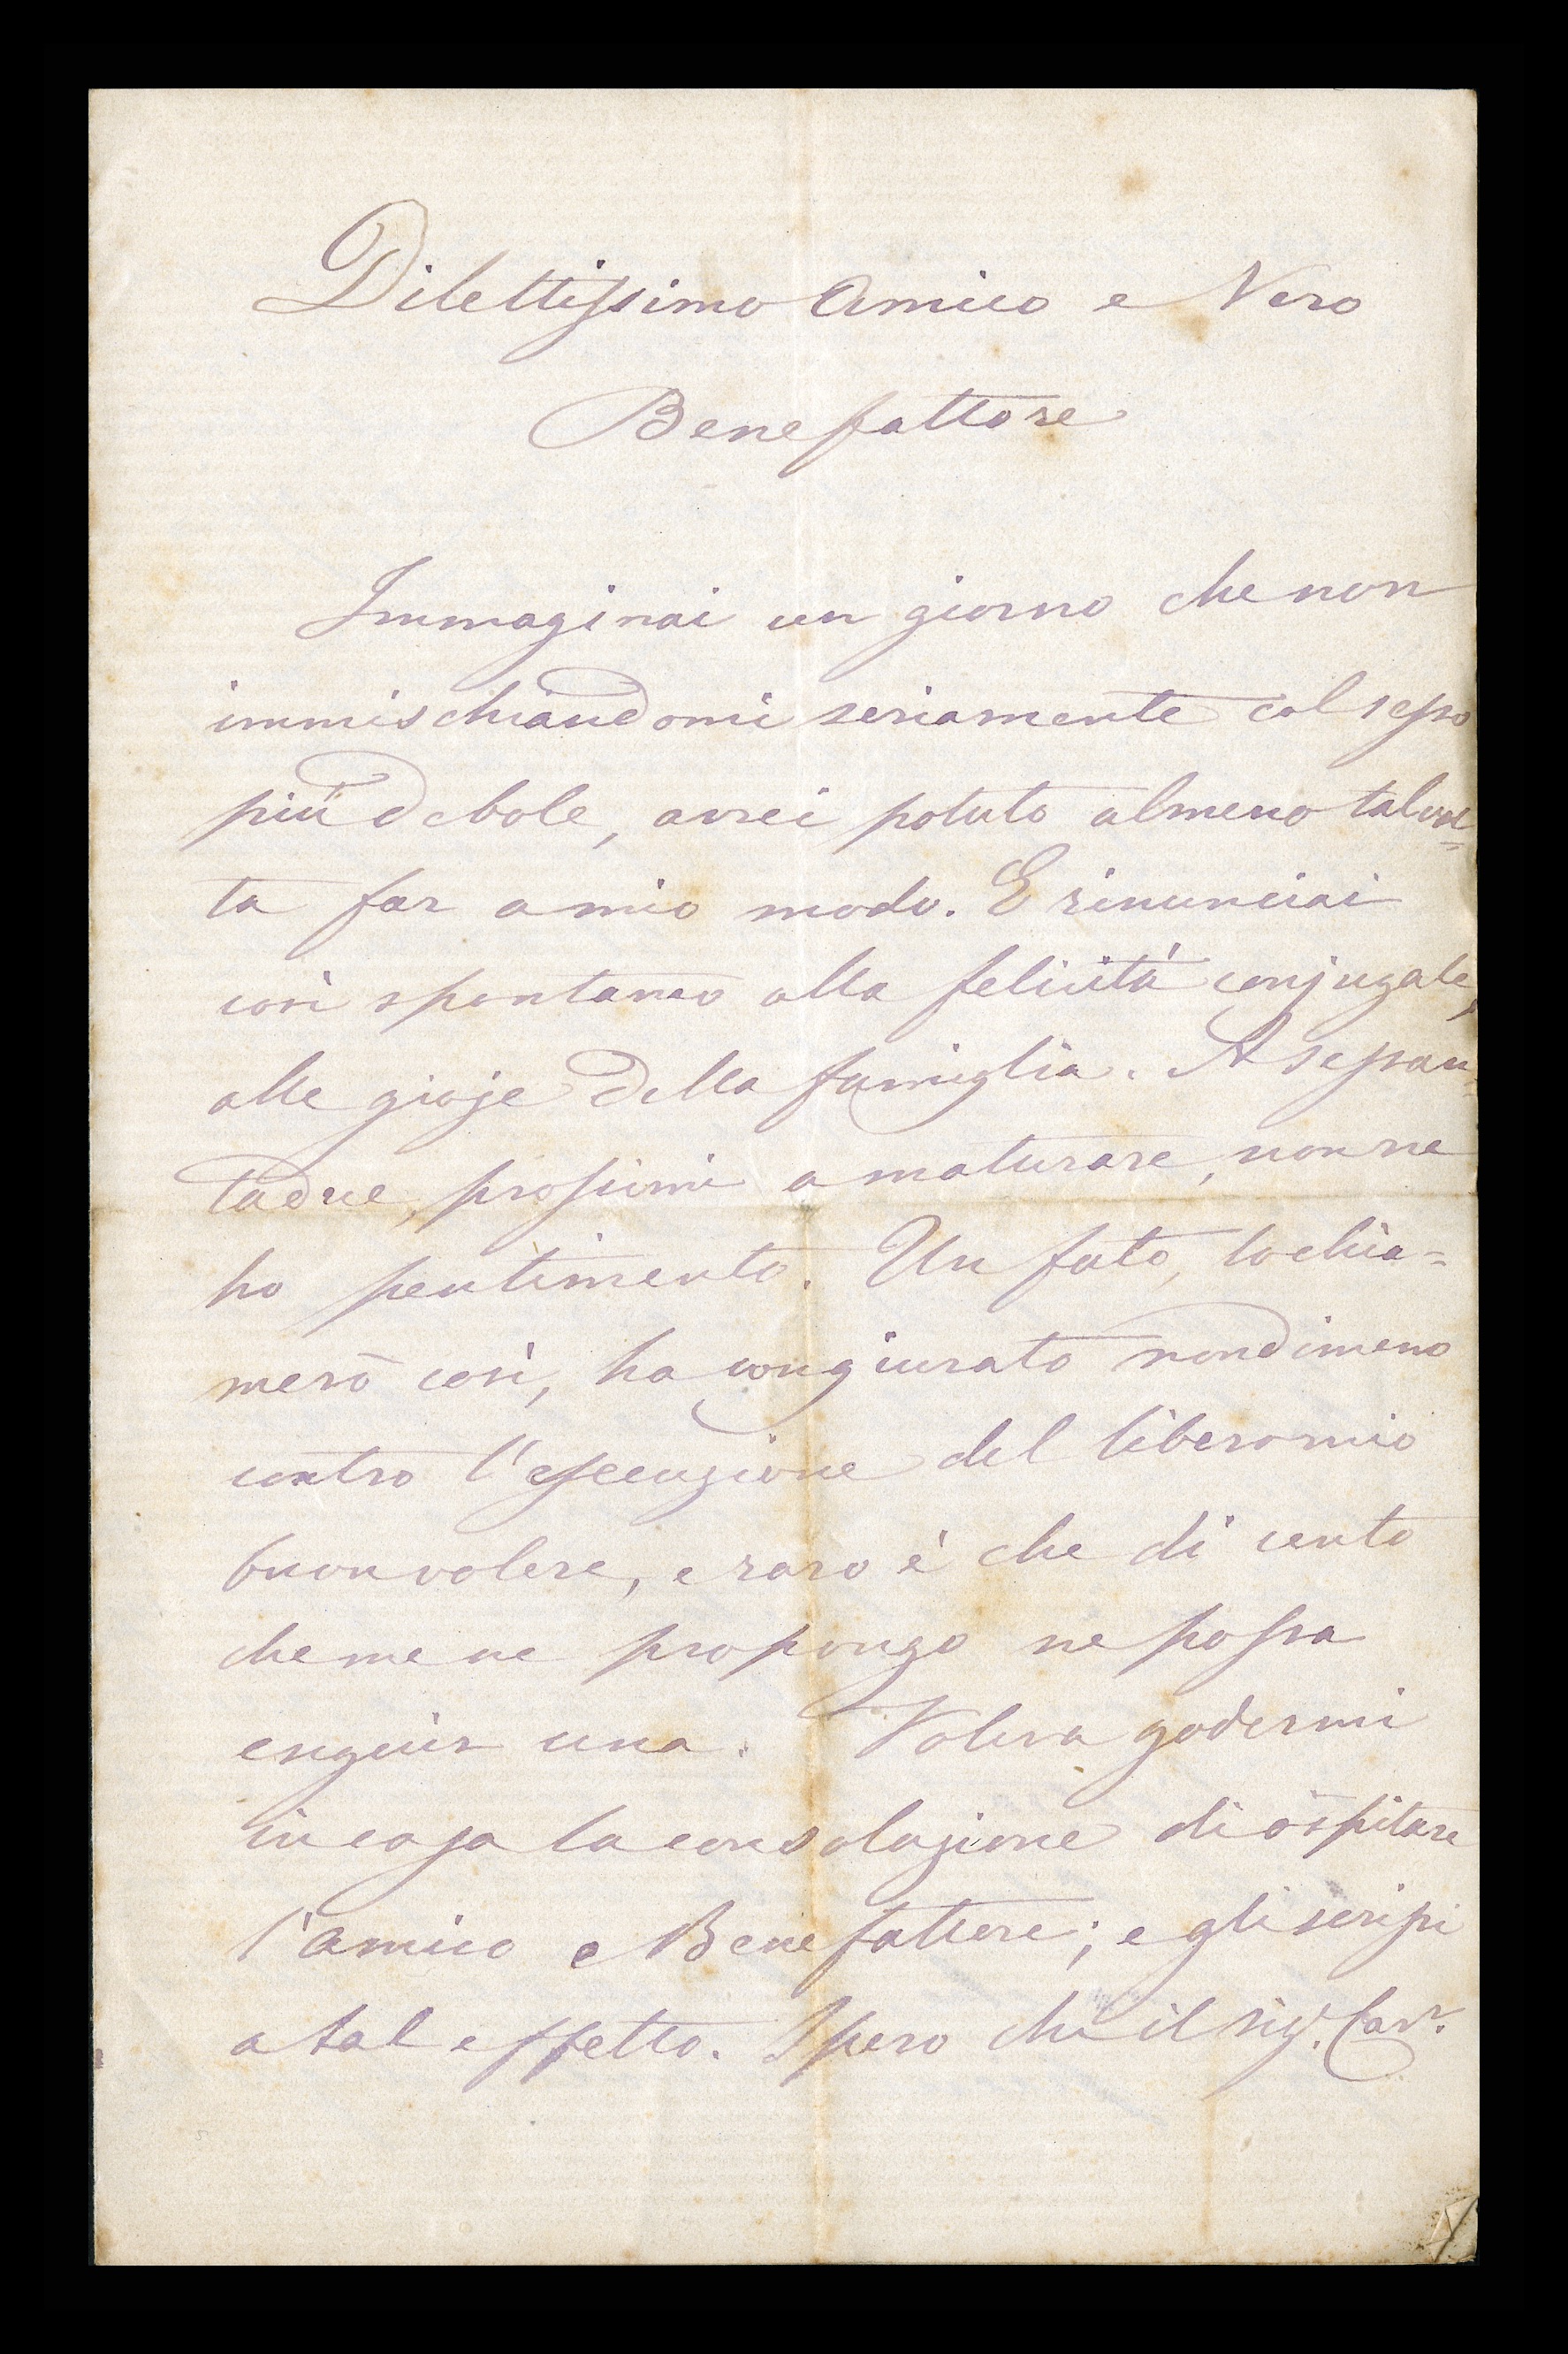 Dilettissimo Amico e Vero
Benefattore
Immaginai un giorno che non
immischiandomi seriamente col sesso
più debole, avrei potuto almeno talvol=
ta far a mio modo. E rinunciai
così spontaneo alla felicità conjugale,
alle gioje della famiglia. A sessan=
tadue, prossimi a maturare, non ne
ho pentimento. Un fato, lo chia=
merò così, ha congiurato nondimeno
contro l'esecuzione del libero mio
buon volere, e raro è che di cento
che me ne propongo ne possa
eseguir una. Voleva godermi
in casa la consolazione di ospitare
l'amico e Benefattore; e gli scrissi
a tal effetto. Spero che il sigr. Cavr.